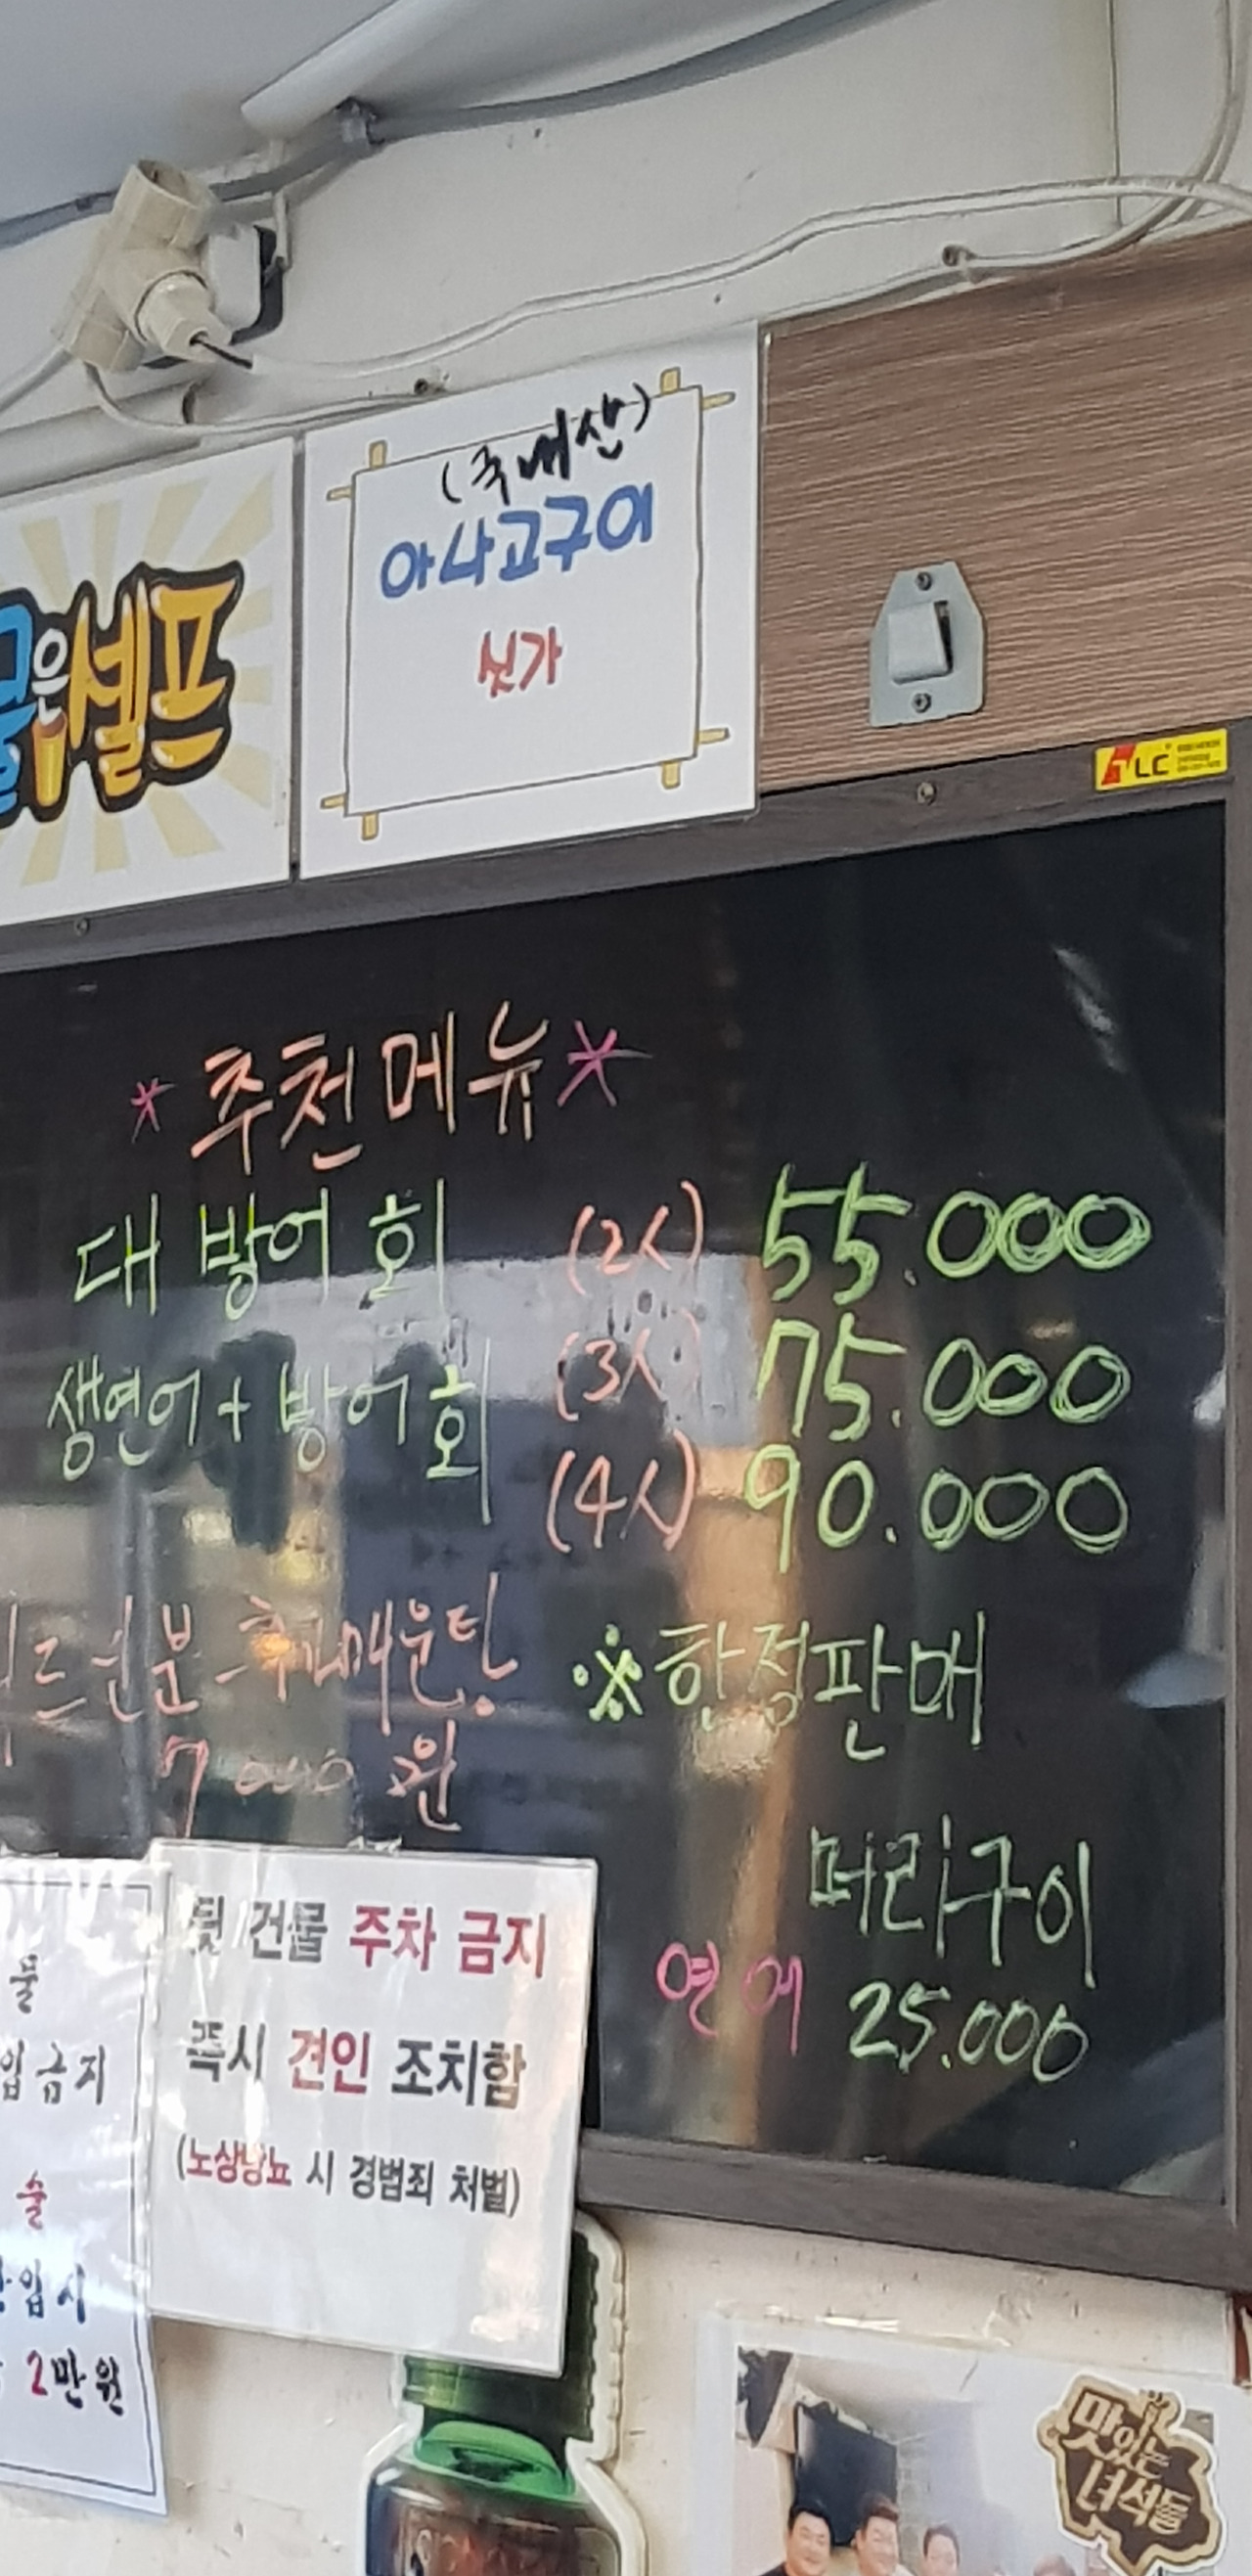 (국내산)
아나고구이
싯가
물은 셀프
TLC
* 추천메뉴 *
대 방어 회 (2人) 55.000
(3人) 75.000
생연어 + 방어 회
(4人) 90.000
매운탕
7000 원
※ 한정판매
머리구이
연어 25.000
뒷 건물 주차 금지
즉시 견인 조치함
(노상방뇨 시 경범죄 처벌)
물
입금지
술
반입시
2만원
맛있는
녀석들